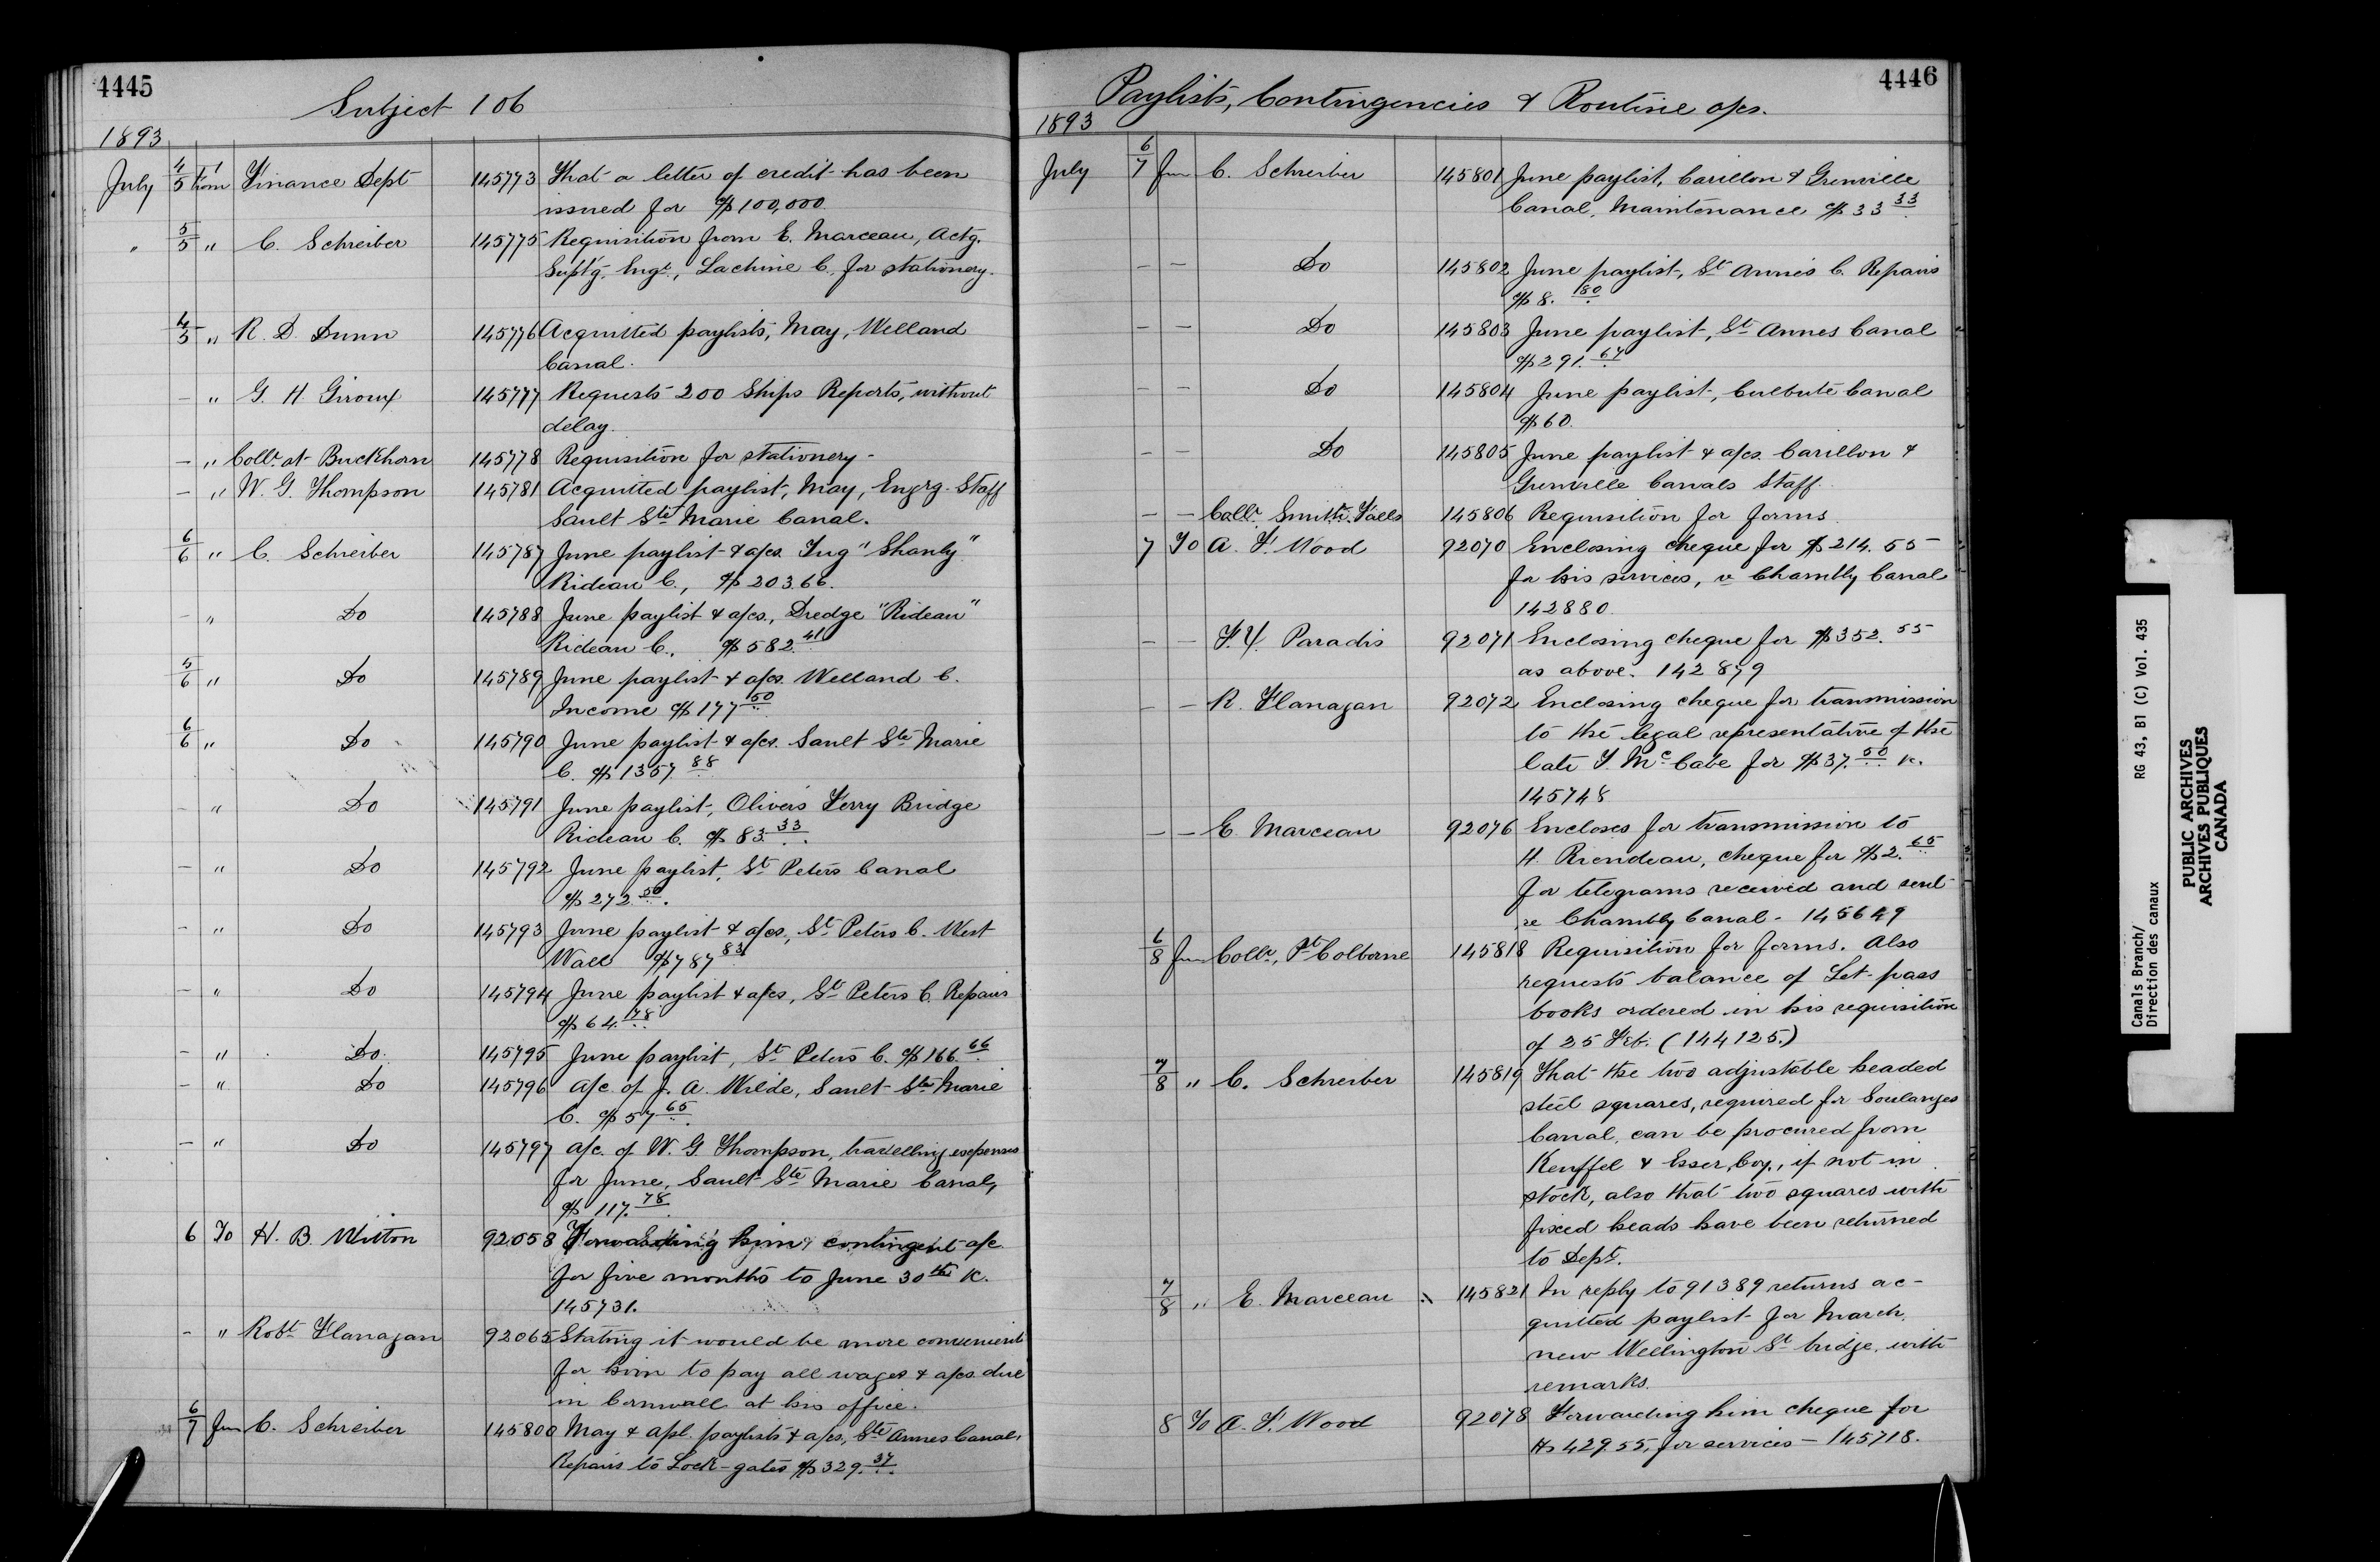 4445
Subject 106
1893
July 4/5 from Finance Dept 145773 That a letter of credit has been
issued for $100,000.
" 5/5 " C. Schreiber 145775 Requisition from E. Marceau, Actg.
Suptg. Engr., Lachine C. for stationery.
4/5 " R. D. Dunn 145776 Acquitted paylists, May, Welland
Canal.
— " G. H. Giroux 145777 Requests 200 Ships Reports, without
delay.
— " Collr. at Buckhorn 145778 Requisition for stationery -
— " W. G. Thompson 145781 Acquitted paylist, May, Engrg. Staff
Sault Ste Marie Canal.
6/6 " C. Schreiber 145787 June paylist & a/cs. Tug "Shanly"
Rideau C., $203.66.
- " Do 145788 June paylist & a/cs., Dredge "Rideau"
Rideau C., $582.41
5/6 " Do 145789 June paylist & a/cs. Welland C.
Income $177.50
6/6 " Do 145790 June paylist & a/cs. Sault Ste Marie
C. $1357.88
- " Do 145791 June paylist, Olivers Ferry Bridge
Rideau C. $83.33
— " Do 145792 June paylist, St Peters Canal
$272.50.
- " Do 145793 June paylist & a/cs., St Peters C. West
Wall $787.83
- " Do 145794 June paylist & a/cs, St Peters C. Repairs
$64.78
- " Do 145795 June paylist, St Peters C. $166.66
- " Do 145796 a/c. of J. A. Wilde, Sault Ste Marie
C. $57.65
— " Do 145797 a/c. of W. G. Thompson, travelling expenses
for June, Sault Ste Marie Canal,
$117.78
6 To H. B. Witton 92058 Forwarding him contingent a/c
for five months to June 30th K.
145731.
- " Robt Flanagan 92065 Stating it would be more convenient
for him to pay all wages & a/cs. due
in Cornwall at his office.
6/7 from C. Schreiber 145800 May & Apl. paylists & a/cs., Ste Annes Canal,
Repairs to Lock-gates $329.37
4446
Paylists, Contingencies & Routine a/cs.
1893
July 6/7 from C. Schreiber 145801 June paylist, Carillon & Grenville
Canal, Maintenance $33.33
— — Do 145802 June paylist, St Annes C. Repairs
$8.
— — Do 145803 June paylist, St Annes Canal
$291.67
— — Do 145804 June paylist, Culbute Canal
$60.
— — Do 145805 June paylist & a/cs. Carillon &
Grenville Canals Staff.
— — Collr. Smiths Falls 145806 Requisition for forms.
7 To A. F. Wood 92070 Enclosing cheque for $214.55
for his services, Chambly Canal
142880.
— — Paradis 92071 Enclosing cheque for $352.55
as above. 142879
— — R. Flanagan 92072 Enclosing cheque for transmission
to the legal representative of the
late McCabe for $37.50 K.
145748
— — E. Marceau 92076 Encloses for transmission to
H. Riendeau, cheque for $2.65
for telegrams received and sent
re Chambly Canal - 145649
6/8 from Collr., Pt Colborne 145818 Requisition for forms. Also
requests balance of Let-pass
books ordered in his requisition
of 25 Feb. (144125.)
7/8 " C. Schreiber 145819 That the two adjustable headed
steel squares, required for Soulanges
Canal, can be procured from
Keuffel & Esser, Coy., if not in
stock, also that two squares with
fixed heads have been returned
to Dept.
7/8 " E. Marceau 145821 In reply to 91389 returns ac-
quitted paylist for March,
new Wellington St bridge, with
remarks.
8 To A. F. Wood 92078 Forwarding him cheque for
$429.55, for services - 145718.
Canals Branch/ RG 43, B1 (C) Vol. 435
Direction des canaux
PUBLIC ARCHIVES
ARCHIVES PUBLIQUES
CANADA